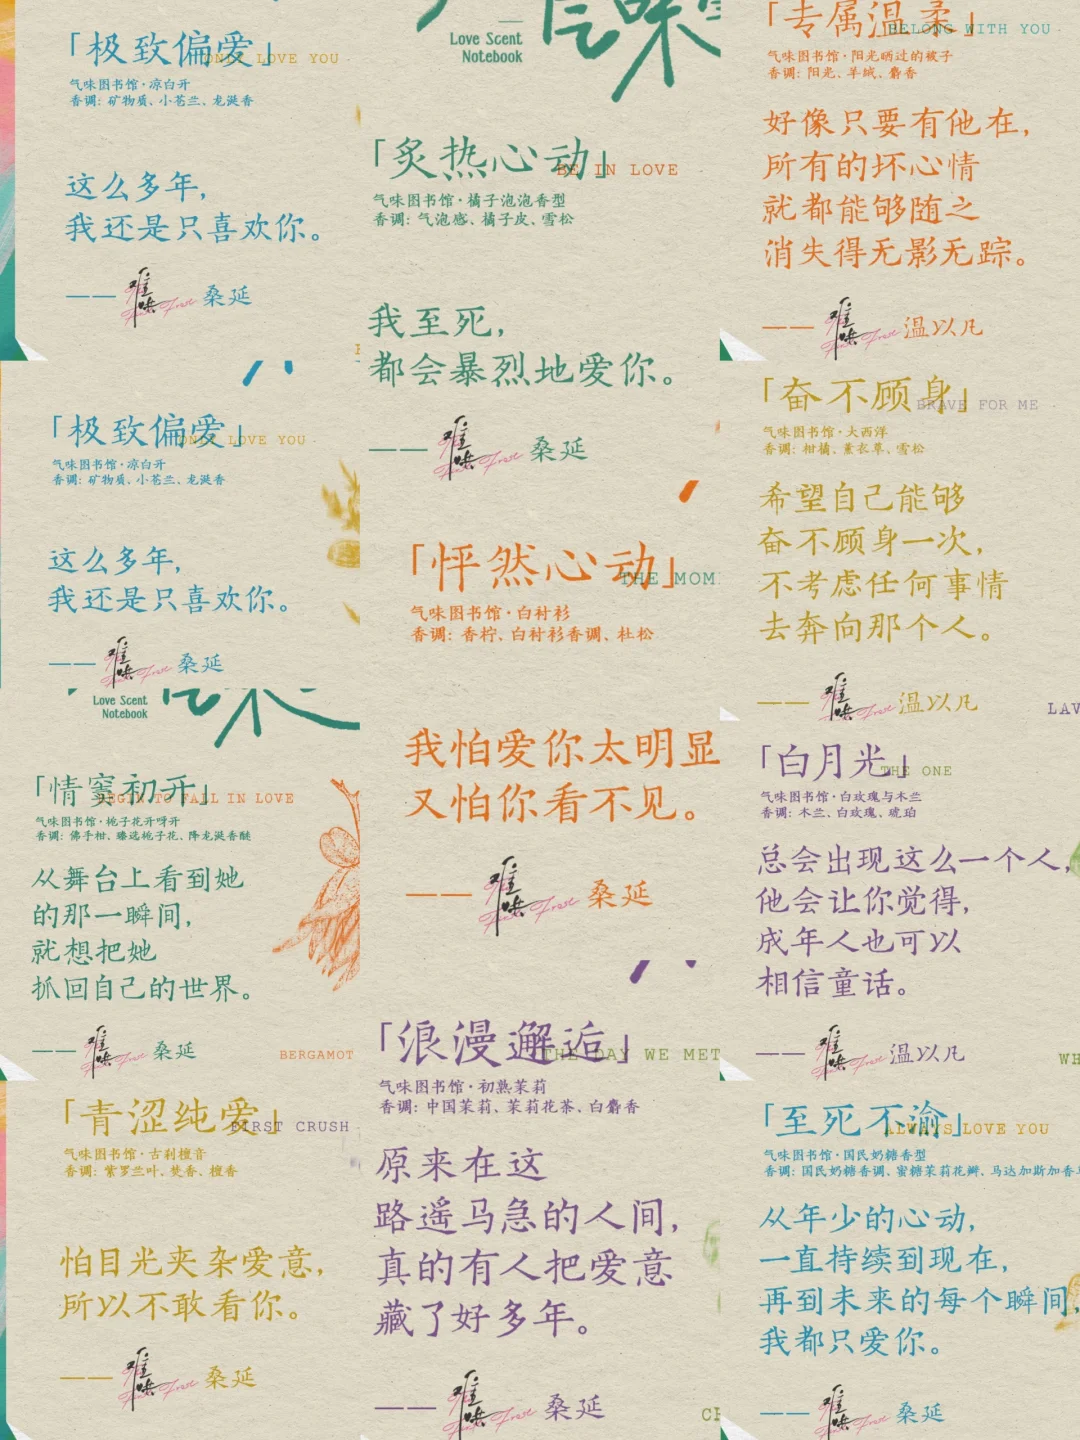 「极致偏爱」
ONLY LOVE YOU
气味图书馆·凉白开
香调：矿物质、小苍兰、龙涎香
这么多年，
我还是只喜欢你。
——难哄 桑延
「极致偏爱」
ONLY LOVE YOU
气味图书馆·凉白开
香调：矿物质、小苍兰、龙涎香
这么多年，
我还是只喜欢你。
——难哄 桑延
Love Scent
Notebook
「情窦初开」
BEGIN TO FALL IN LOVE
气味图书馆·栀子花开呀开
香调：佛手柑、臻选栀子花、降龙涎香醚
从舞台上看到她
的那一瞬间，
就想把她
抓回自己的世界。
——难哄 桑延
BERGAMOT
「青涩纯爱」
FIRST CRUSH
气味图书馆·古刹檀音
香调：紫罗兰叶、焚香、檀香
怕目光夹杂爱意，
所以不敢看你。
——难哄 桑延
气味
Love Scent
Notebook
「炙热心动」
BE IN LOVE
气味图书馆·橘子泡泡香型
香调：气泡感、橘子皮、雪松
我至死，
都会暴烈地爱你。
——难哄 桑延
「怦然心动」
THE MOM
气味图书馆·白衬衫
香调：香柠、白衬衫香调、杜松
我怕爱你太明显
又怕你看不见。
——难哄 桑延
「浪漫邂逅」
THE DAY WE MET
气味图书馆·初熟茉莉
香调：中国茉莉、茉莉花茶、白麝香
原来在这
路遥马急的人间，
真的有人把爱意
藏了好多年。
——难哄 桑延
「专属温柔」
BELONG WITH YOU
气味图书馆·阳光晒过的被子
香调：阳光、羊绒、麝香
好像只要有他在，
所有的坏心情
就都能够随之
消失得无影无踪。
——难哄 温以凡
「奋不顾身」
BRAVE FOR ME
气味图书馆·大西洋
香调：柑橘、薰衣草、雪松
希望自己能够
奋不顾身一次，
不考虑任何事情
去奔向那个人。
——难哄 温以凡
LAV
「白月光」
THE ONE
气味图书馆·白玫瑰与木兰
香调：木兰、白玫瑰、琥珀
总会出现这么一个人，
他会让你觉得，
成年人也可以
相信童话。
——难哄 温以凡
WH
「至死不渝」
ALWAYS LOVE YOU
气味图书馆·国民奶糖香型
香调：国民奶糖香调、蜜糖茉莉花瓣、马达加斯加香
从年少的心动，
一直持续到现在，
再到未来的每个瞬间，
我都只爱你。
——难哄 桑延